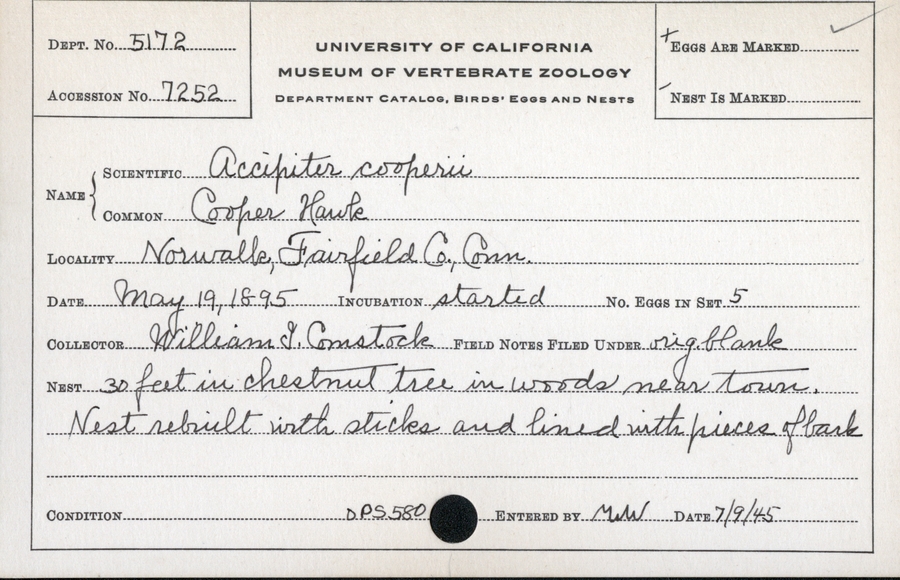 Dept. No. 5172
Accession No. 7252
UNIVERSITY OF CALIFORNIA
MUSEUM OF VERTEBRATE ZOOLOGY
Department Catalog, Birds' Eggs and Nests
+ Eggs Are Marked ✓
- Nest Is Marked
Name { Scientific Accipiter cooperii
Common Cooper Hawk
Locality Norwalk, Fairfield Co., Conn.
Date May 19, 1895 Incubation started No. Eggs in Set 5
Collector William I. Comstock Field Notes Filed Under orig. blank
Nest 30 feet in chestnut tree in woods near town.
Nest rebuilt with sticks and lined with pieces of bark
Condition DPS 580 Entered by Date 7/9/45